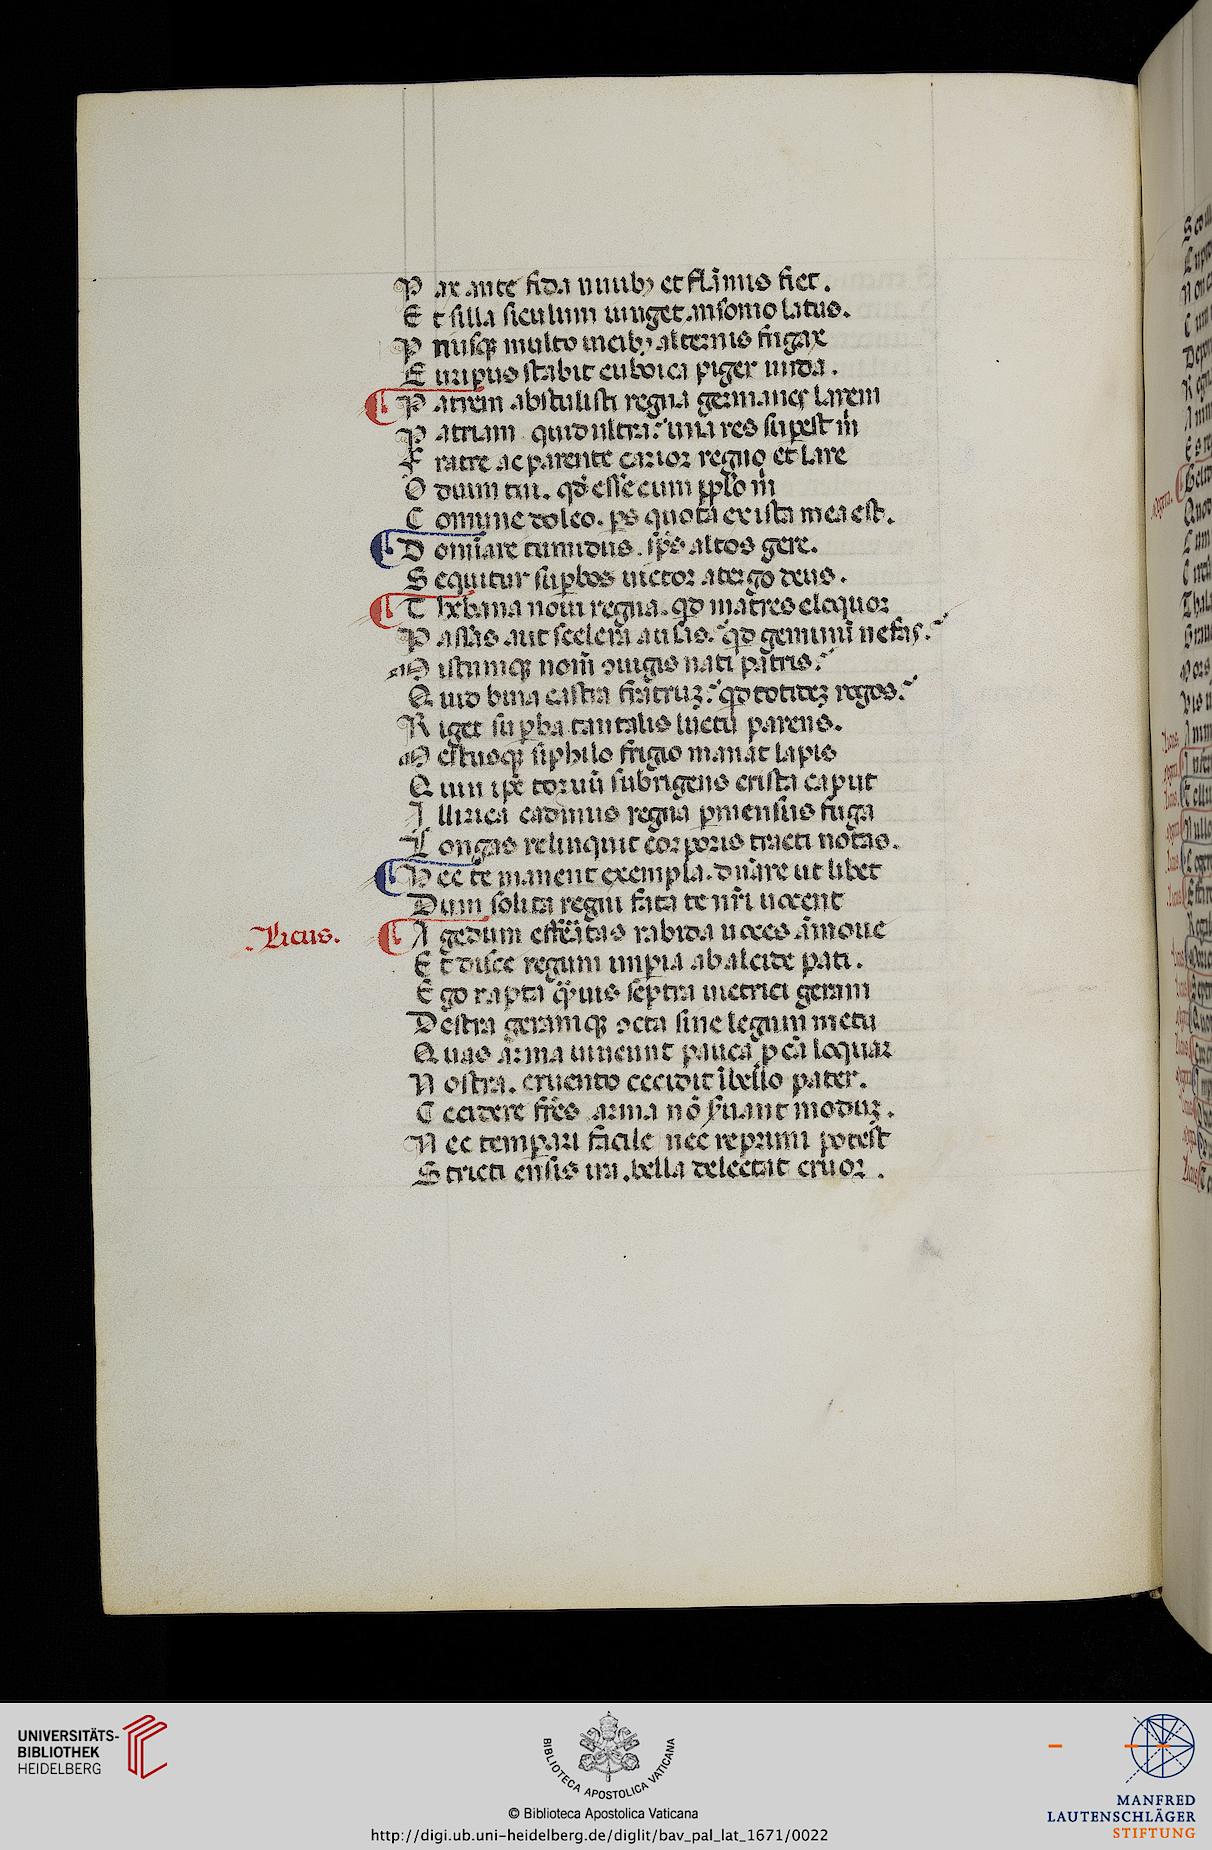 P ax ante fida niuibꝫ et flāmis fiet.
E t silla siculum iunget ausonio latus.
P riusqꝫ multo uicibꝫ alternis fugax
E uripus stabit euboica piger unda.
P atrem abstulisti regna germanos larem
P atriam quid ultra? una res suꝑest m̄
F ratre ac parente carior regno et lare
O dium tui. qđ esse cum ppl̄o m̄
C omune doleo. ps quota ex ista mea est.
D omīare tumidus. sp̄s altos gere.
S equitur suꝑbos uictor a tergo deus.
T hebana noui regna. qđ matres eloquar
P assas aut scelera ausas? qđ geminū nefas?
M istumqꝫ nom̄ ꝯiugis nati patris?
Q uid bina castra fratrum? qđ totidē rogos?
R iget suꝑba tantalis luctu parens.
M estusqꝫ siphilo frigio manat lapis
Q uin ip̄e toruū subrigens crista caput
I llirica cadmus regna ꝑmensus fuga
L ongas relinquit corporis tracti notas.
H ec te manent exempla. dn̄are ut libet
Dum solita regni fata te nr̄i uocent
Licus.
A gedum efferatas rabida uoces amoue
E t disce regum imperia ab alcide pati.
E go rapta q̄muis septra uictrici geram
Destra geramqꝫ ōcta sine legum metu
Q uas arma uincunt pauca p cā loquar
N ostra. cruento cecidit ī bello pater.
C ecidere fr̄es arma nō s̄uant modum.
N ec temperari facile nec reprimi potest
S tricti ensis ira. bella delectat cruor.
UNIVERSITÄTS-
BIBLIOTHEK
HEIDELBERG
BIBLIOTECA APOSTOLICA VATICANA
© Biblioteca Apostolica Vaticana
http://digi.ub.uni-heidelberg.de/diglit/bav_pal_lat_1671/0022
MANFRED
LAUTENSCHLÄGER
STIFTUNG